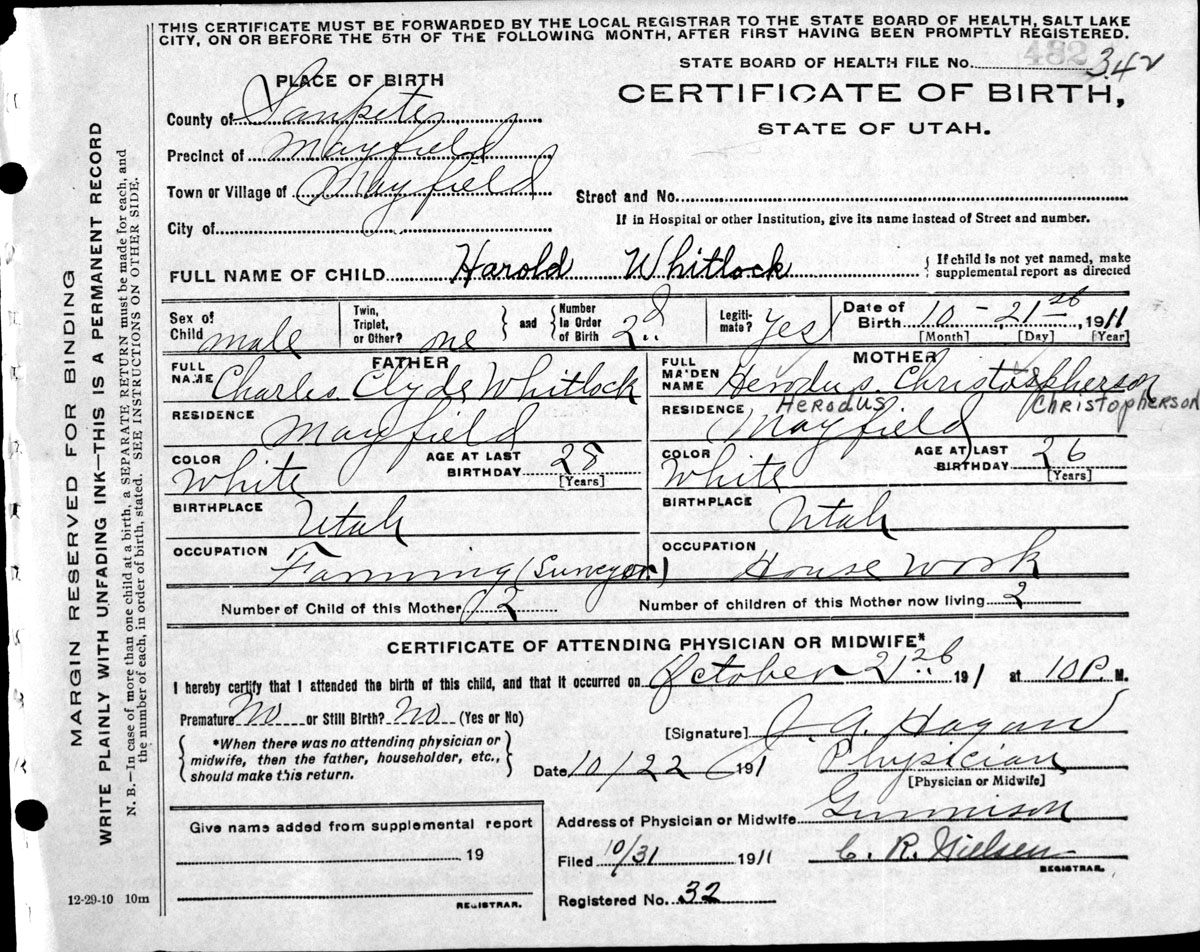 THIS CERTIFICATE MUST BE FORWARDED BY THE LOCAL REGISTRAR TO THE STATE BOARD OF HEALTH, SALT LAKE
CITY, ON OR BEFORE THE 5TH OF THE FOLLOWING MONTH, AFTER FIRST HAVING BEEN PROMPTLY REGISTERED.
482
STATE BOARD OF HEALTH FILE No. 342
PLACE OF BIRTH
CERTIFICATE OF BIRTH,
STATE OF UTAH.
County of Sanpete
Precinct of Mayfield
Town or Village of Mayfield
Street and No.
If in Hospital or other Institution, give its name instead of Street and number.
City of
FULL NAME OF CHILD Harold Whitlock { If child is not yet named, make
supplemental report as directed
Sex of Child male
Twin, Triplet, or Other? one } and { Number In Order of Birth 2d
Legitimate? Yes
Date of Birth 10 - 21st, 1911
[Month] [Day] [Year]
FATHER
FULL NAME Charles Clyde Whitlock
RESIDENCE
Mayfield
COLOR White
AGE AT LAST BIRTHDAY 28
[Years]
BIRTHPLACE
Utah
OCCUPATION
Farming (Surveyor)
MOTHER
FULL MAIDEN NAME Herodus Christopherson
RESIDENCE HERODUS CHRISTOPHERSON
Mayfield
COLOR White
AGE AT LAST BIRTHDAY 26
[Years]
BIRTHPLACE
Utah
OCCUPATION
House work
Number of Child of this Mother 2
Number of children of this Mother now living 2
CERTIFICATE OF ATTENDING PHYSICIAN OR MIDWIFE*
I hereby certify that I attended the birth of this child, and that it occurred on October 21st 191 at 10 P. M.
Premature No or Still Birth? No (Yes or No)
{ *When there was no attending physician or
midwife, then the father, householder, etc.,
should make this return. }
[Signature] J. A. Hagan
Date 10/22 191
Physician
[Physician or Midwife]
Address of Physician or Midwife Gunnison
Give name added from supplemental report
19
REGISTRAR.
Filed 10/31 1911 C. R. Nielsen
REGISTRAR.
Registered No. 32
12-29-10 10m
MARGIN RESERVED FOR BINDING
WRITE PLAINLY WITH UNFADING INK—THIS IS A PERMANENT RECORD
N. B.—In case of more than one child at a birth, a SEPARATE RETURN must be made for each, and
the number of each, in order of birth, stated. SEE INSTRUCTIONS ON OTHER SIDE.